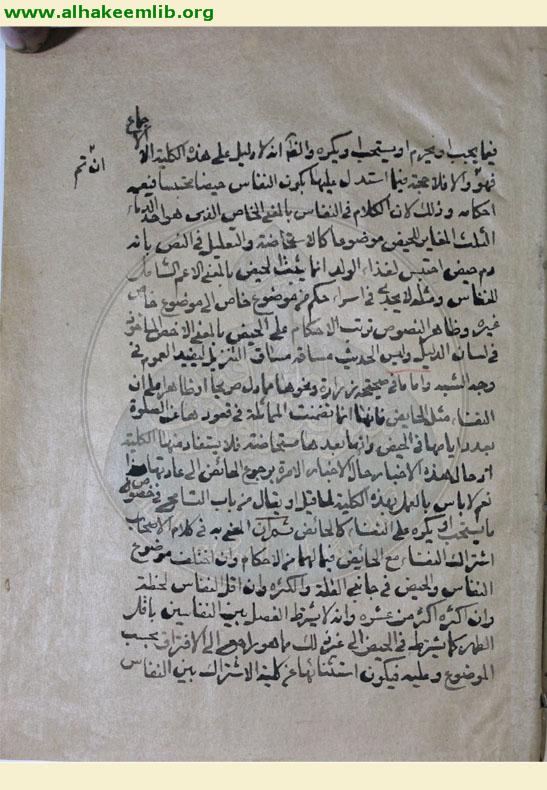 www.alhakeemlib.org
الاجماع
ان تم
فيما يجب او يحرم او يستحب او يكره والفا انه لا دليل على هذه الكلية الا
فهو والا فلا حجة فيما استدل عليها بكون النفاس حيضا محتبسا فيعمه
احكامه وذلك لان الكلام في النفاس بالمعنى الخاص الذى هو احد الدماء
الثلث المغاير للحيض موضوعا كالاستحاضة والتعليل في النص بانه
دم حيض احتبس لغذاء الولد انما يثبت الحيض بالمعنى الاعم الشامل
للنفاس ومثله لا يجدى في اسراء حكم من موضوع خاص الى موضوع خاص
غيره وظاهر النصوص ترتب الاحكام على الحيض بالمعنى الاخص
في لسان الدليل وليس الحديث مساقه مساق التنزيل ليفيد العموم في
وجه الشبه واما ما في صحيحة زرارة ونحوها مما دل صريحا او ظاهرا على ان
النفساء مثل الحايض فانها انما تضمنت المماثلة في قعودها عن الصلوة
بعدد ايامها في الحيض وانها بعدها مستحاضة فلا يستفاد منها الكلية
از حال هذه الاخبار حال الاخبار الامرة برجوع الحائض الى عادتها هذا
نعم لا باس بالعمل بهذه الكلية لما قيل ويقال من باب التسامح في خصوص
ما يستحب او يكره على النفساء كالحائض ثم ان المعنى به في كلام الاصحاب
اشتراك النفساء مع الحايض فيما لهما من الاحكام وان اختلف موضوع
النفاس والحيض في جانبي القلة والكثرة وان اقل النفاس لحظة
وان اكثره اكثر من عشره وانه لا يشترط الفصل بين النفاسين باقل
الطهر كما يشترط في الحيض الى غير ذلك مما هو راجع الى الافتراق بحسب
الموضوع وعليه فيكون استثنائها عن كلية الاشتراك بين النفاس